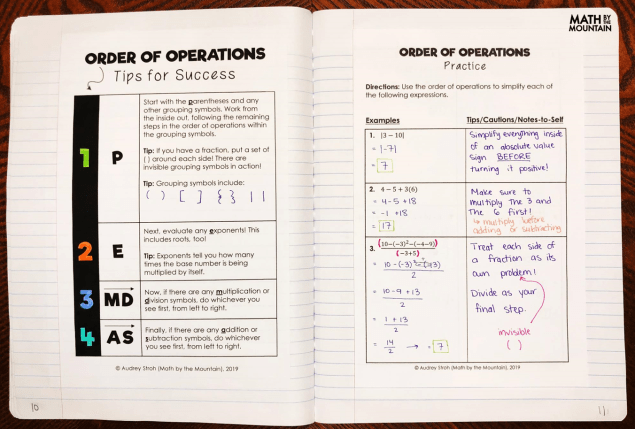 MATH BY THE
MOUNTAIN
ORDER OF OPERATIONS
Tips for Success
1
P
Start with the parentheses and any
other grouping symbols. Work from
the inside out, following the remaining
steps in the order of operations within
the grouping symbols.
Tip: If you have a fraction, put a set of
( ) around each side! There are
invisible grouping symbols in action!
Tip: Grouping symbols include:
( ) [ ] { } | |
2
E
Next, evaluate any exponents! This
includes roots, too!
Tip: Exponents tell you how many
times the base number is being
multiplied by itself.
3
MD
Now, if there are any multiplication or
division symbols, do whichever you
see first, from left to right.
4
AS
Finally, if there are any addition or
subtraction symbols, do whichever
you see first, from left to right.
© Audrey Stroh (Math by the Mountain), 2019
10
ORDER OF OPERATIONS
Practice
Directions: Use the order of operations to simplify each of
the following expressions.
Examples
Tips/Cautions/Notes-to-Self
1. |3 – 10|
= |-7|
= 7
Simplify everything inside
of an absolute value
sign BEFORE
turning it positive!
2. 4 – 5 + 3(6)
= 4-5 +18
= -1 +18
= 17
Make sure to
multiply the 3 and
the 6 first!
↳ multiply before
adding or subtracting
3. (10–(–3)²–(–4–9))
(–3+5)
= 10 -(-3)²-(-13)
2
= 10 -9 +13
2
= 1 + 13
2
= 14
2
→ = 7
Treat each side of
a fraction as its
own problem!
Divide as your
final step.
invisible
( )
© Audrey Stroh (Math by the Mountain), 2019
11